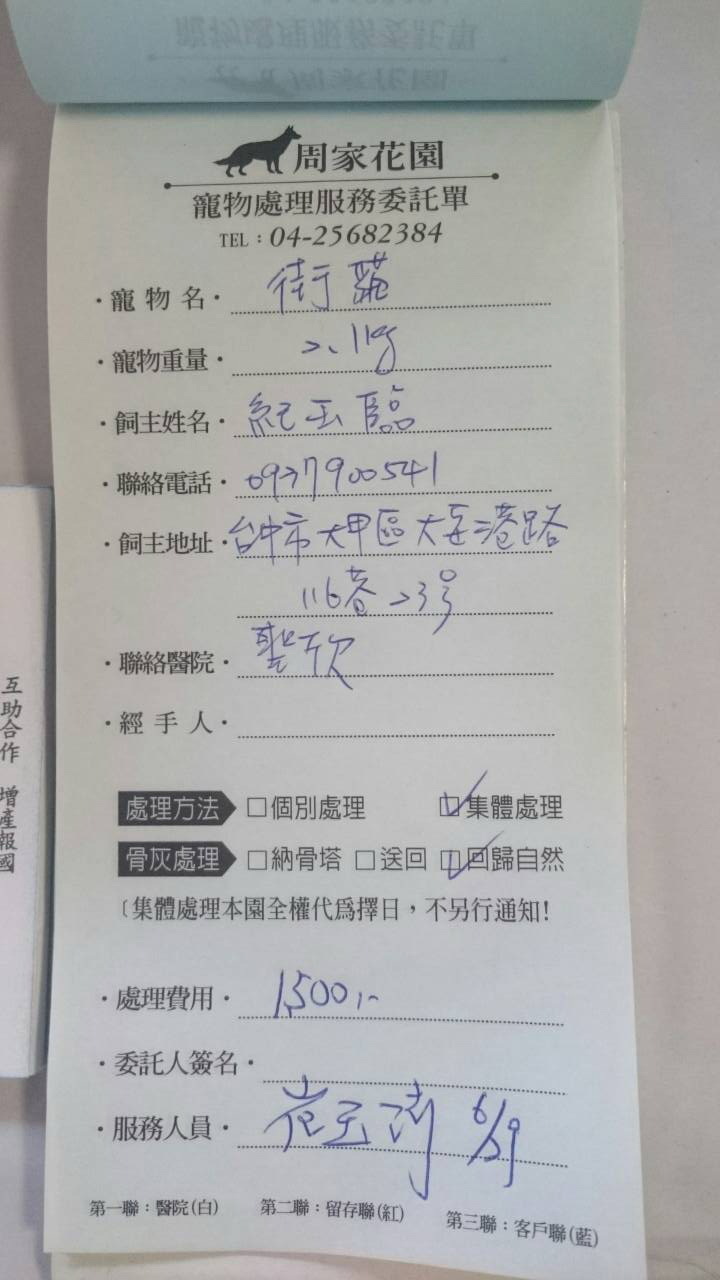 周家花園
寵物處理服務委託單
TEL：04-25682384
・寵物名・
・寵物重量・ 2.1kg
・飼主姓名・ 紀玉臨
・聯絡電話・ 0937900541
・飼主地址・ 台中市大甲區大安港路
116巷23号
・聯絡醫院・ 聖欣
・經手人・
處理方法 □個別處理 ☑集體處理
骨灰處理 □納骨塔 □送回 ☑回歸自然
〔集體處理本園全權代爲擇日，不另行通知!
・處理費用・ 1,500,-
・委託人簽名・
・服務人員・ 6/29
第一聯：醫院(白) 第二聯：留存聯(紅) 第三聯：客戶聯(藍)
互助合作 增產報國